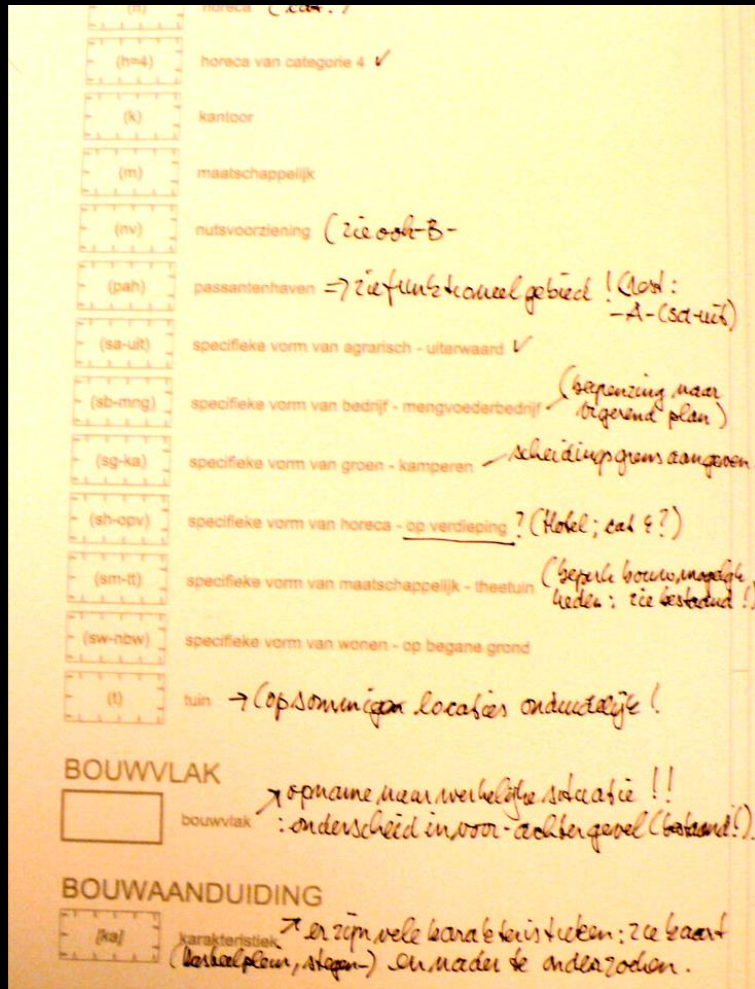 (h) horeca (cat.?)
(h=4) horeca van categorie 4 ✓
(k) kantoor
(m) maatschappelijk
(nv) nutsvoorziening (zie ook -B-
(pah) passantenhaven => zie funktioneel gebied ! (
-A-(sa-uit)
(sa-uit) specifieke vorm van agrarisch - uiterwaard ✓
(sb-mng) specifieke vorm van bedrijf - mengvoederbedrijf (begrenzing naar
vigerend plan)
(sg-ka) specifieke vorm van groen - kamperen scheidingsgrens aangeven.
(sh-opv) specifieke vorm van horeca - op verdieping ? (Hotel; cat 4?)
(sm-tt) specifieke vorm van maatschappelijk - theetuin (beperk bouwmogelijk
heden: zie bestaand!)
(sw-nbw) specifieke vorm van wonen - op begane grond
(t) tuin → (opsommingen locaties onduidelijk!
BOUWVLAK
opname naar werkelijke situatie !!
bouwvlak : onderscheid in voor-achtergevel (bestaand!).
BOUWAANDUIDING
[ka] karakteristiek er zijn vele karakteristieken: zie kaart
(, stegen-) en nader te onderzoeken.